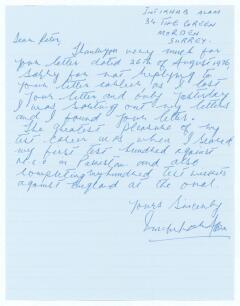 INTIKHAB ALAM
34 THE GREEN
MORDEN
SURREY.
Dear Peter,
Thankyou very much for
your letter dated 26th of August 1976,
Sorry for not replying to
your letter earlier as I lost
your letter and only yesterday
I was sorting out my letters
and I found your letter.
The greatest pleasure of my
test career was when I scored
my first test hundred against
M.C.C in Pakistan and also
completing my hundred test wickets
against England at the oval.
Yours Sincerely
Intikhab Alam